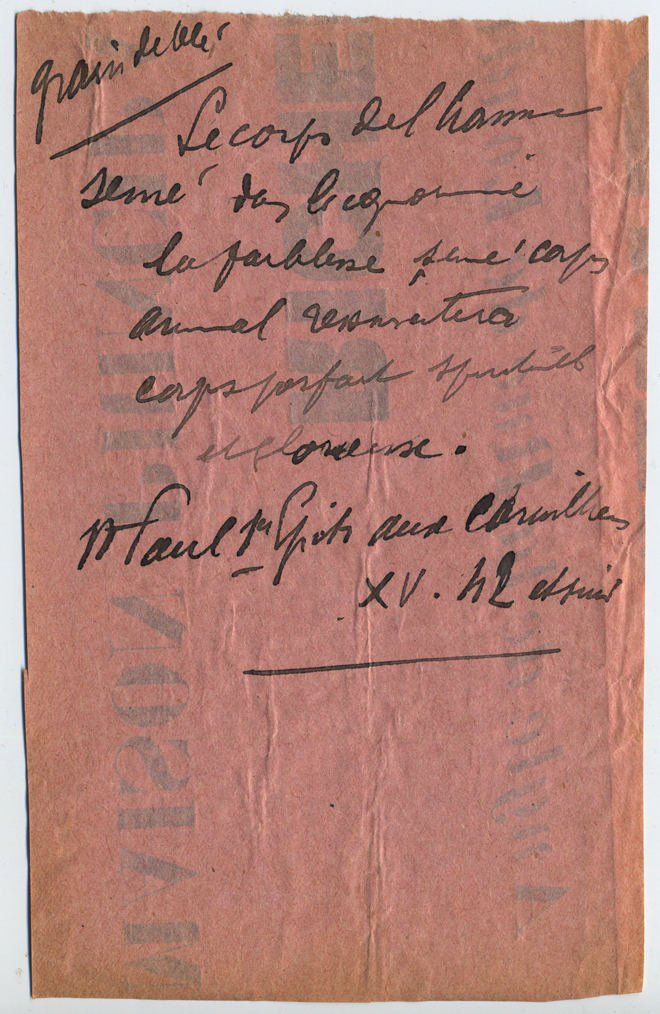 grain de blé
Le corps de l homme
semé dans l ignominie
la faiblesse, semé corps
animal ressuscitera
corps parfait spirituel
et glorieuse.
St Paul 1re Epitre aux Corinthiens
XV. 42 et suiv
MAISON